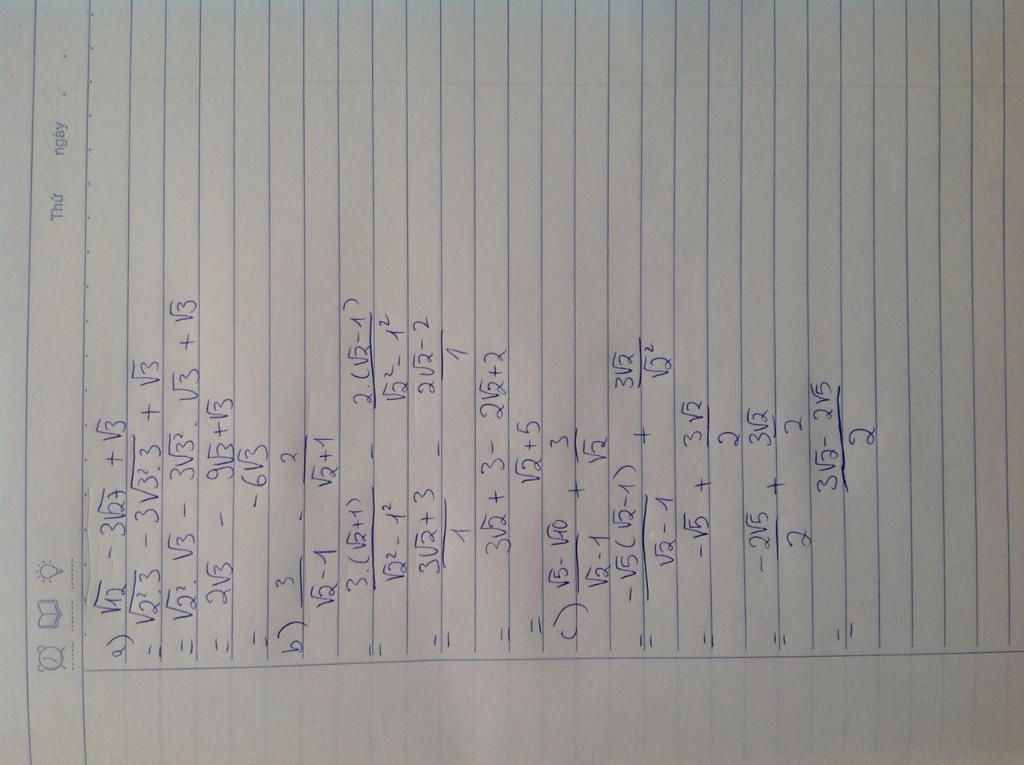 Thứ ngày
a) √12 - 3√27 + √3
= √2².3 - 3√3².3 + √3
= √2² . √3 - 3√3² . √3 + √3
= 2√3 - 9√3 + √3
= -6√3
b) 3/(√2-1) - 2/(√2+1)
= 3.(√2+1)/(√2²-1²) - 2.(√2-1)/(√2²-1²)
= (3√2+3)/1 - (2√2-2)/1
= 3√2 + 3 - 2√2 + 2
= √2 + 5
c) (√5-√10)/(√2-1) + 3/√2
= -√5(√2-1)/(√2-1) + 3√2/√2²
= -√5 + 3√2/2
= -2√5/2 + 3√2/2
= (3√2 - 2√5)/2